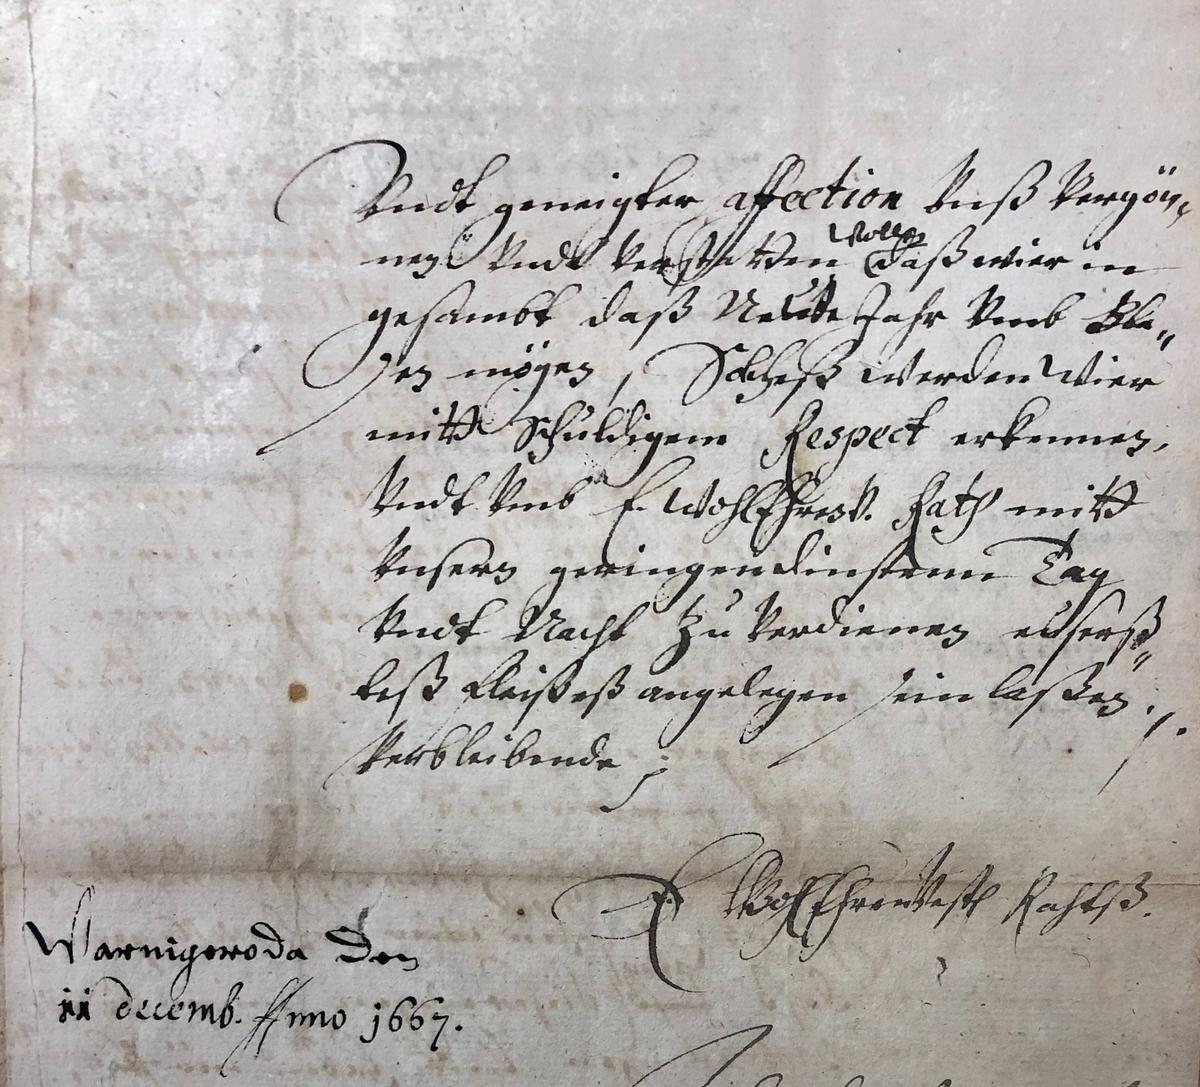 Vndt geneigter affection Vnß Vergön,
nen Vndt Verstatten wollen daß wier in
gesambt daß Neüe Jahr Vmb Bla„
sen mögen, Solcheß werden wier
mitt Schuldigem Respect erkennen,
Vndt Vmb E. WohlEhrnV. Rath mitt
Vnsern geringen dinstenn Tag
Vndt Nacht Zu Verdienen euserß„
teß fleißeß angelegen sein laßen ./.
Verbleibende ;
E. WolEhrenVest Rahtß.
Warnigeroda Den
11 decemb. Anno 1667.